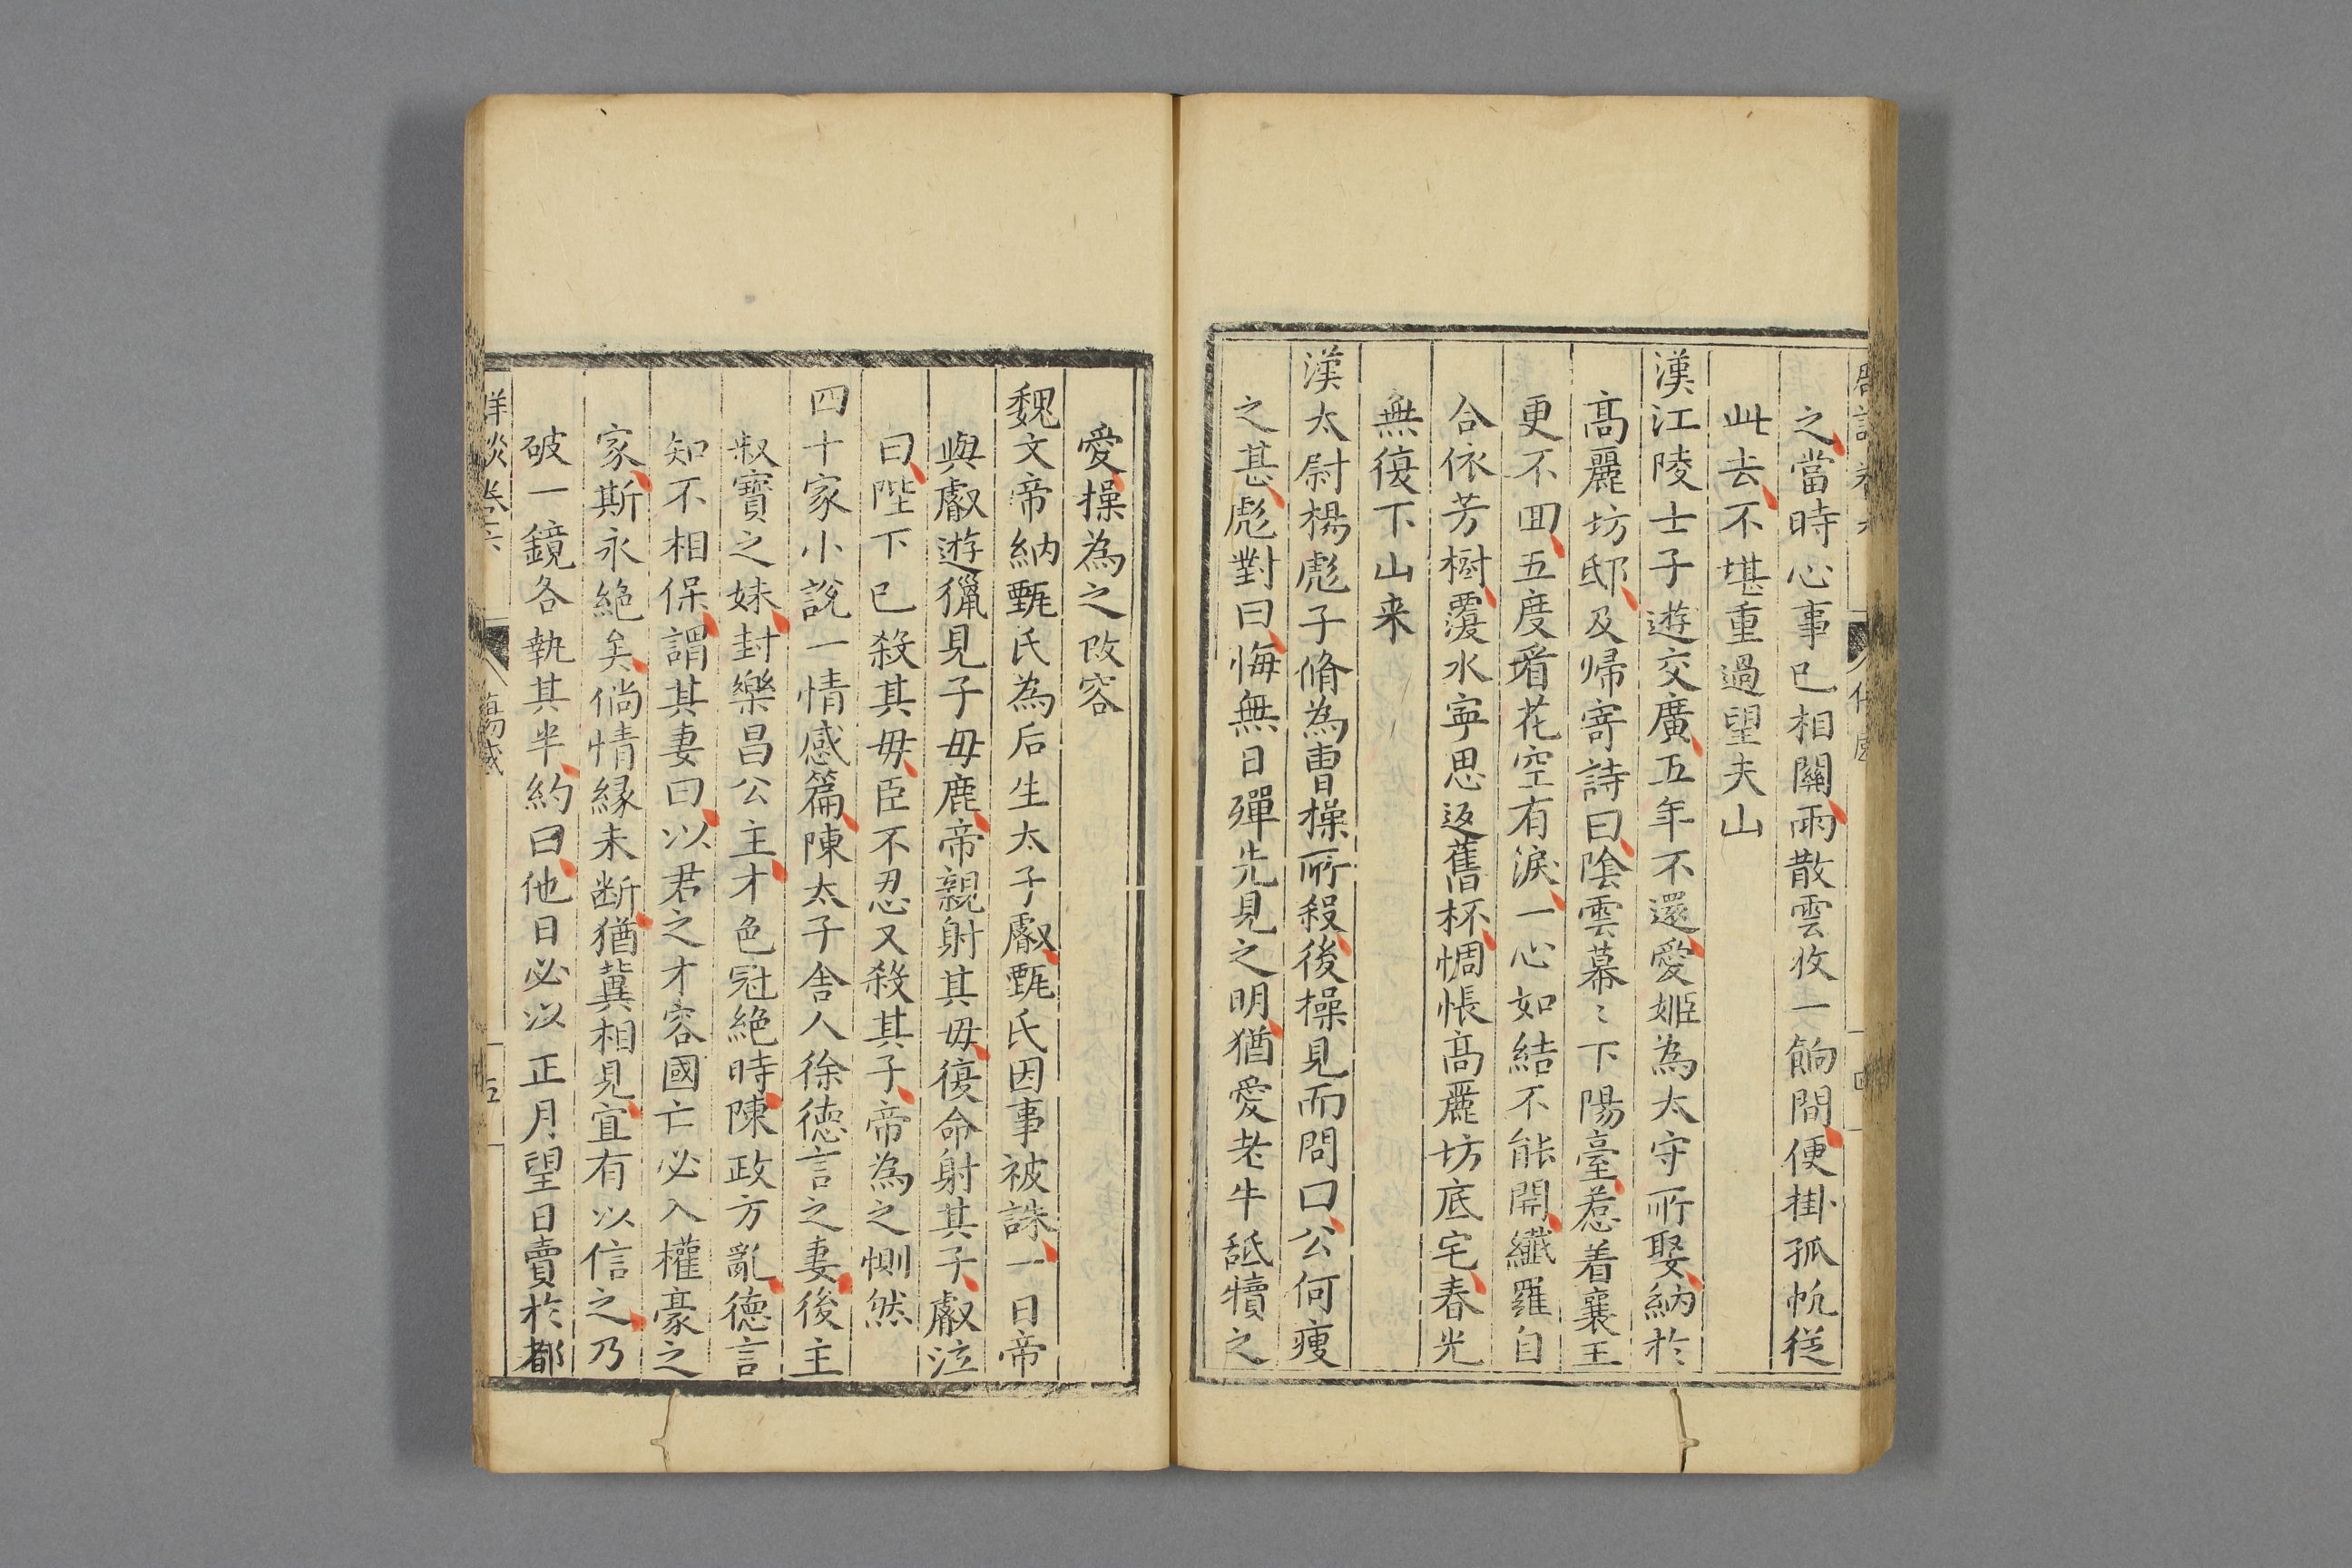 之當時心事已相關雨散雲收一餉間便掛孤帆從
此去不堪重過望夫山
漢江陵士子遊交廣五年不還愛姬為太守所娶納於
髙麗坊邸及帰寄詩曰陰雲幕〻下陽臺惹着襄王
更不囬五度看花空有淚一心如結不能開纖羅自
合依芳樹覆水寕思返舊杯惆悵髙麗坊底宅春光
無復下山来
漢太尉楊彪子脩為曹操所殺後操見而問曰公何瘦
之甚彪對曰悔無日磾先見之明猶愛老牛舐犢之
愛操為之改容
魏文帝納甄氏為后生太子叡甄氏因事被誅一日帝
與叡遊獵見子母鹿帝親射其母復命射其子叡泣
曰陛下已殺其母臣不忍又殺其子帝為之惻然
四十家小說一情感篇陳太子舎人徐德言之妻後主
叔寶之妹封樂昌公主才色冠絶時陳政方亂德言
知不相保謂其妻曰以君之才容國亡必入權豪之
家斯永絶矣倘情縁未断猶冀相見宜有以信之乃
破一鏡各執其半約曰他日必以正月望日賣於都
卷六
五